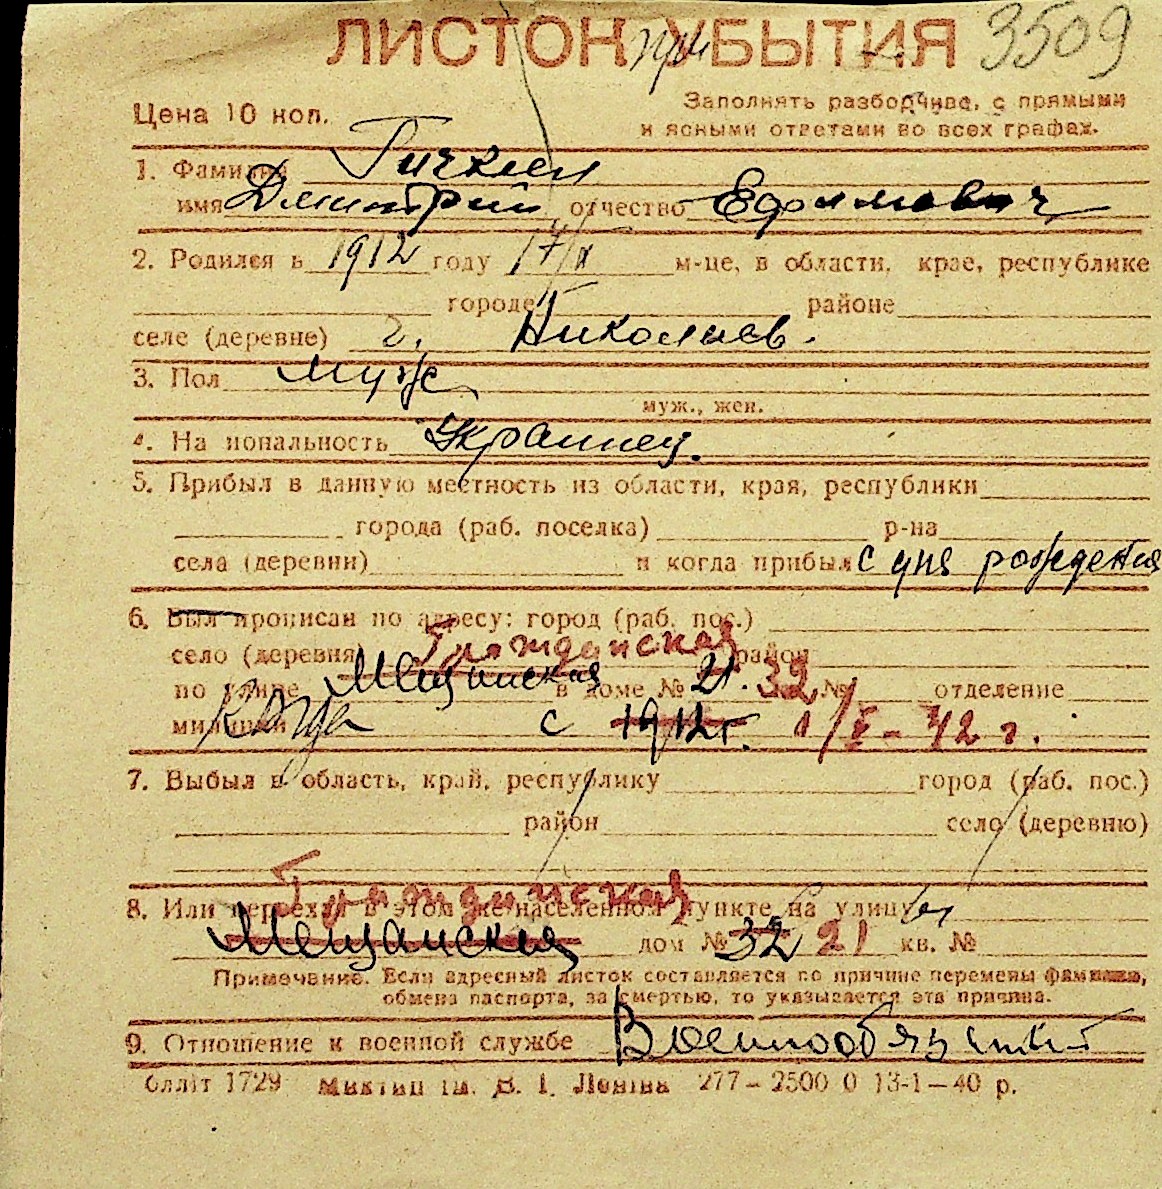 ЛИСТОК при УБЫТИЯ 3509
Цена 10 коп.
Заполнять разборчиво, с прямыми
и ясными ответами во всех графах.
1. Фамилия
имя Дмитрий отчество Ефимович
2. Родился в 1912 году 17/ м-це, в области, крае, республике
городе районе
селе (деревне) г. Николаев.
3. Пол муж
муж., жен.
4. На иональность Украинец.
5. Прибыл в данную местность из области, края, республики
города (раб. поселка) р-на
села (деревни) и когда прибыл с дня рождения
6. Был прописан по адресу: город (раб. пос.)
село (деревня) Гражданская район
по улице Мещанская в доме № 21. 32 № отделение
милиции Когда с 1912 г. 1/X - 42 г.
7. Выбыл в область, край, республику город (раб. пос.)
район село (деревню)
Гражданская
8. Или переехал в этом же населенном пункте на улицу
Мещанская дом № 32 21 кв. №
Примечание. Если адресный листок составляется по причине перемены фамилии,
обмена паспорта, за смертью, то указывается эта причина.
9. Отношение к военной службе Военнообязанный
блліт 1729 Миктип ім. В. І. Леніна 277—2500 0 13-1—40 р.